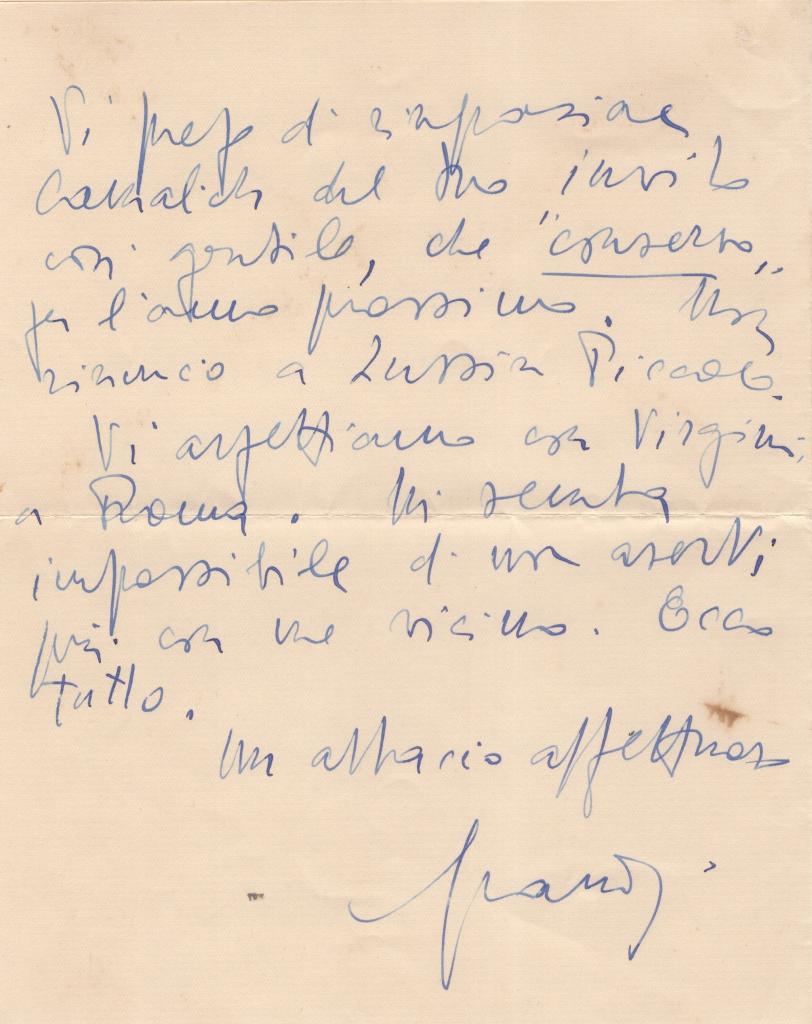 Vi prego di ringraziare
del Suo invito
così gentile, che "conservo"
per l'anno prossimo. Non
rinuncio a Lussin Piccolo.
Vi aspettiamo con Virginia
a Roma. Mi sembra
impossibile di non avervi
più con me vicino. Ecco
tutto.
Un abbracio affettuoso
Grandi